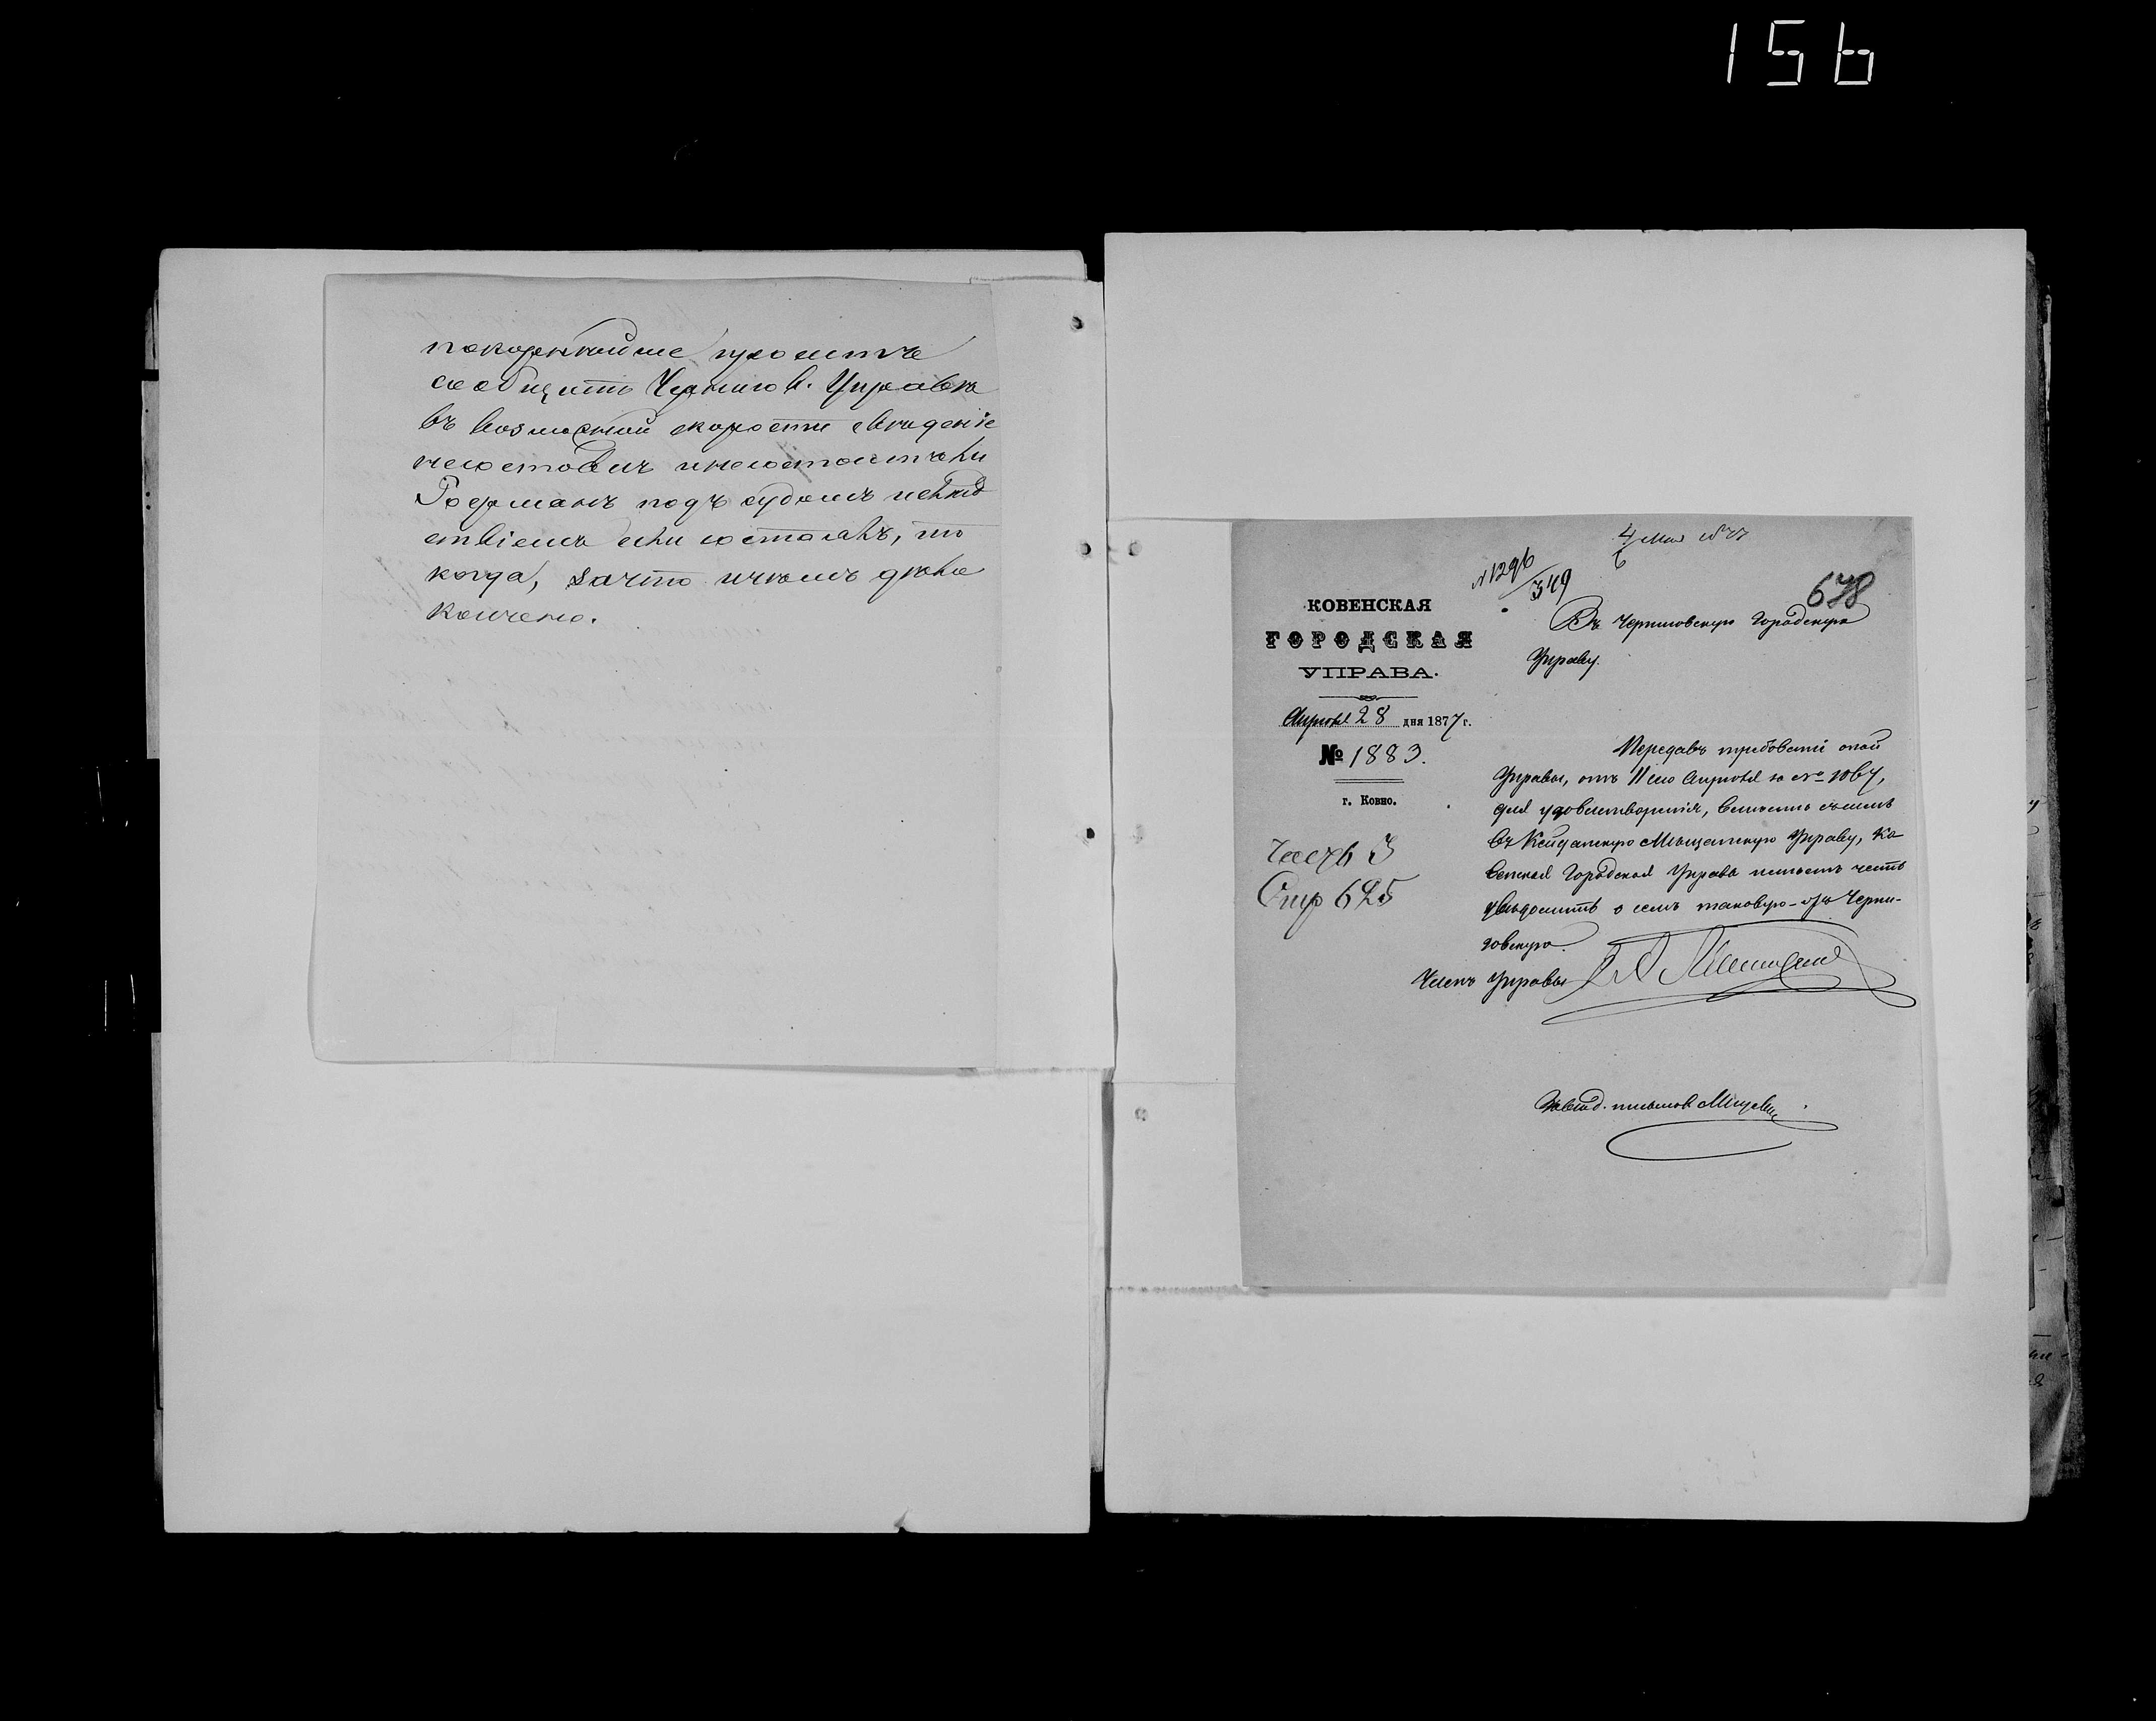 156
покорнѣйше проситъ
сообщить Чернигов. Управѣ
въ возможной скорости свѣденіе
несостовлъ инесостоитъли
Роерманъ подъ судомъ ислѣд
ствіемъ если состоялъ, то
когда, зачто ичѣмъ дѣло
кончено.
4 Мая 1877
6
№1296
349
678
КОВЕНСКАЯ
ГОРОДСКАЯ
УПРАВА.
Апрѣля 28 дня 1877 г.
№ 1883.
г. Ковно.
Часть 3
Стр 625
Въ Черниговскую Городскую
Управу.
Передавъ требованіе оной
Управы, отъ 11го Апрѣля за № 1067,
для удовлетворенія, вмѣстѣ съ симъ
въ Кейданскую Мѣщанскую Управу, Ко
венская Городская Управа имѣетъ честь
увѣдомить о семъ таковую-же Черни-
говскую.
Членъ Управы
Завѣд. письмов